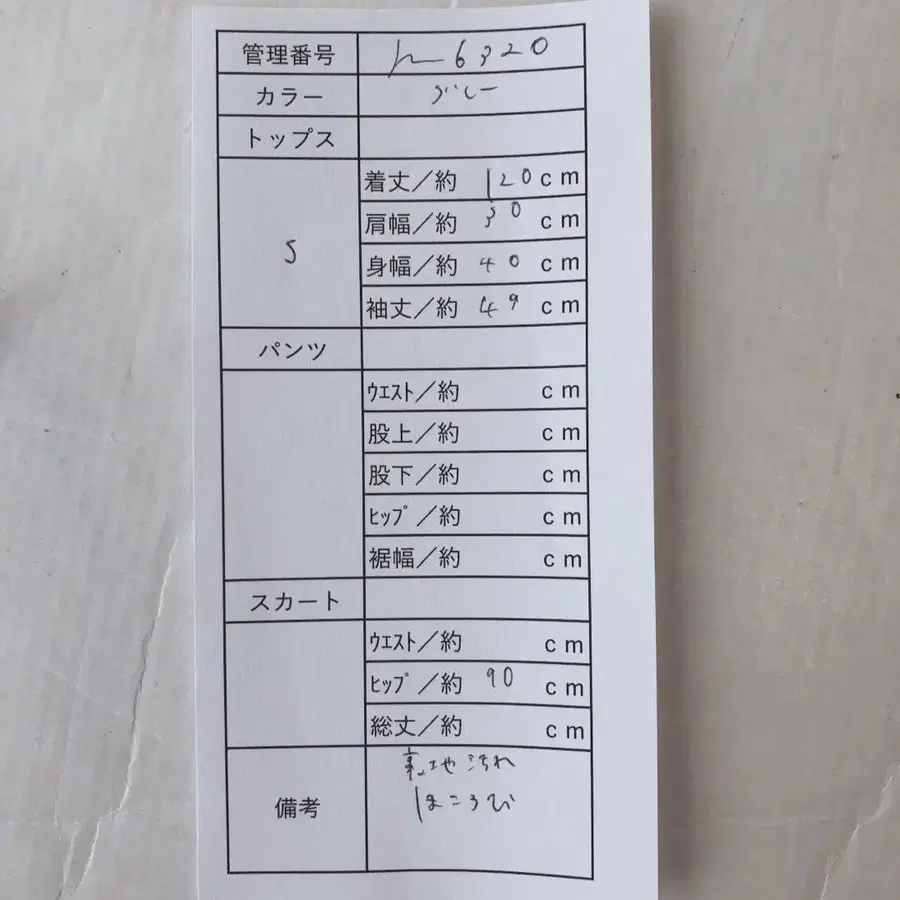 管理番号 h6320
カラー グレー
トップス
S
着丈／約 120 cm
肩幅／約 30 cm
身幅／約 40 cm
袖丈／約 49 cm
パンツ
ｳｴｽﾄ／約 cm
股上／約 cm
股下／約 cm
ﾋｯﾌﾟ／約 cm
裾幅／約 cm
スカート
ｳｴｽﾄ／約 cm
ﾋｯﾌﾟ／約 90 cm
総丈／約 cm
備考
裏地汚れ
ほころび